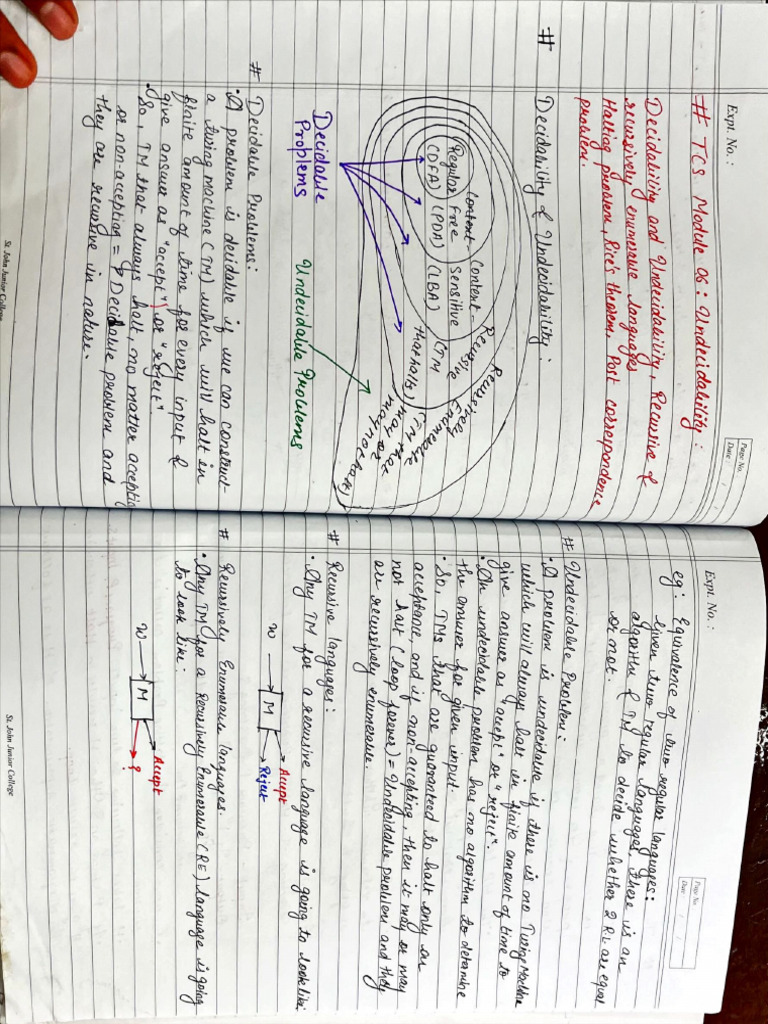 Expt. No. :
Page No.
Date
# TCS Module 06 : Undecidability :
Decidability and Undecidability, Recursive &
recursively enumerable languages
Halting problem, Rice's theorem, Post correspondence
problem.
# Decidability & Undecidability :
Regular
(DFA)
Context-
Free
(PDA)
Context-
Sensitive
(LBA)
Recursive
(TM
that halts)
Recursively
Enumerable
(TM that
may or
may not halt)
Decidable
Problems
Undecidable Problems
# Decidable Problems :
• A problem is decidable if we can construct
a turing machine (TM) which will halt in
finite amount of time for every input &
give answer as "accept" or "reject".
• So, TM that always halt, no matter accepting
or non-accepting = Decidable problem and
they are recursive in nature.
St. John Junior College
Expt. No. :
Page No.
Date
eg: Equivalence of two regular languages:
Given two regular languages, there is an
algorithm & TM to decide whether 2 RL are equal
or not.
# Undecidable Problem :
• A problem is undecidable if there is no Turing Machine
which will always halt in finite amount of time to
give answer as "accept" or "reject".
• An undecidable problem has no algorithm to determine
the answer for given input.
• So, TMs that are guaranteed to halt only on
acceptance and if non-accepting, then it may or may
not halt (loop forever) = Undecidable problem and they
are recursively enumerable.
# Recursive languages :
• Any TM for a recursive language is going to look like:
w
M
Accept
Reject
# Recursively Enumerable languages.
• Any TM for a Recursively Enumerable (RE) language is going
to look like:
w
M
Accept
?
St. John Junior College